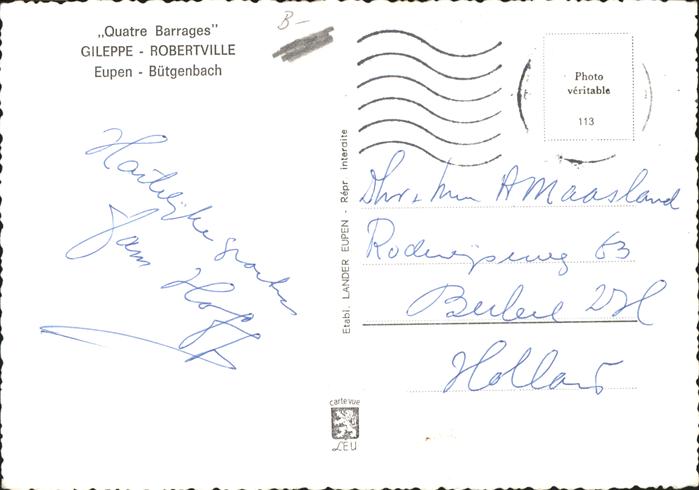 „Quatre Barrages"
GILEPPE - ROBERTVILLE
Eupen - Bütgenbach
B-
Photo
véritable
113
Hartelijke groeten
Jan
Etabl. LANDER EUPEN - Répr interdite
Dhr + Mw A Maasland
63
Holland
carte vue
LEU